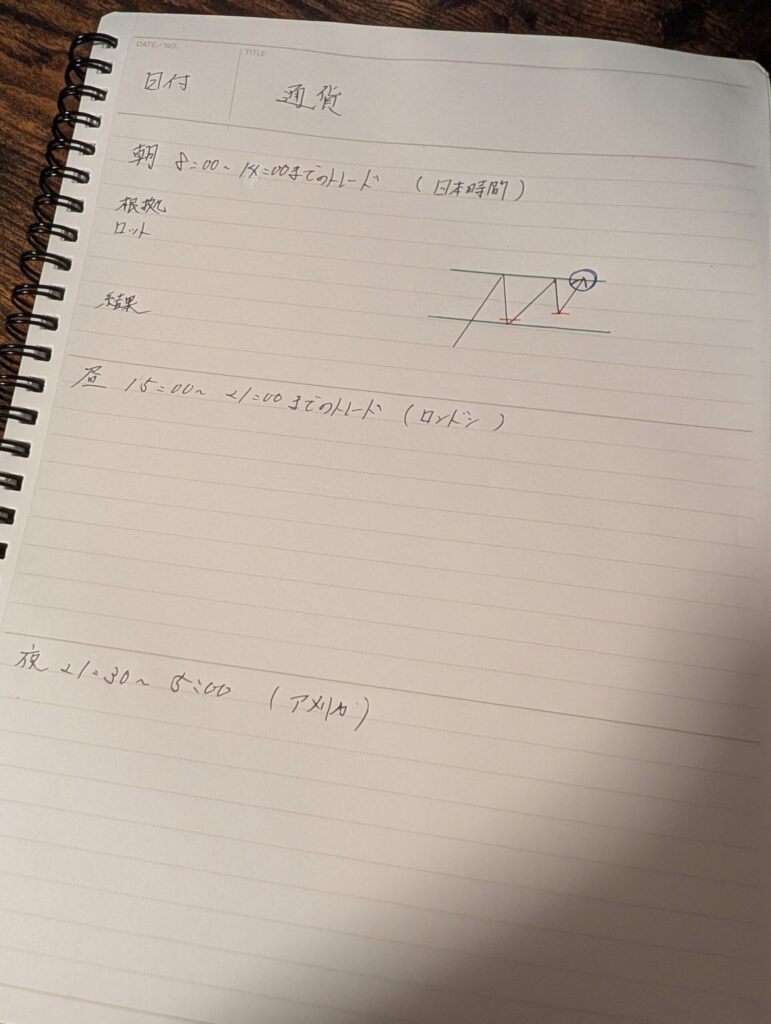 DATE/NO.
TITLE
日付
通貨
朝 8:00~14:00までのトレード (日本時間)
根拠
ロット
結果
昼 15:00~21:00までのトレード (ロンドン)
夜 21:30~5:00 (アメリカ)